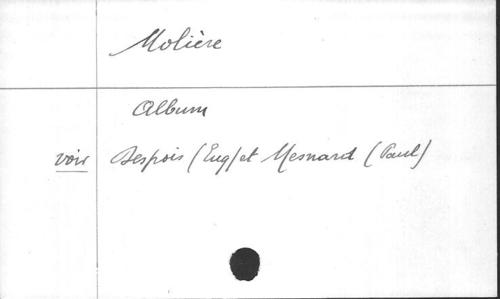 Molière
Album
voir Despois (Eug) et Mesnard (Paul)